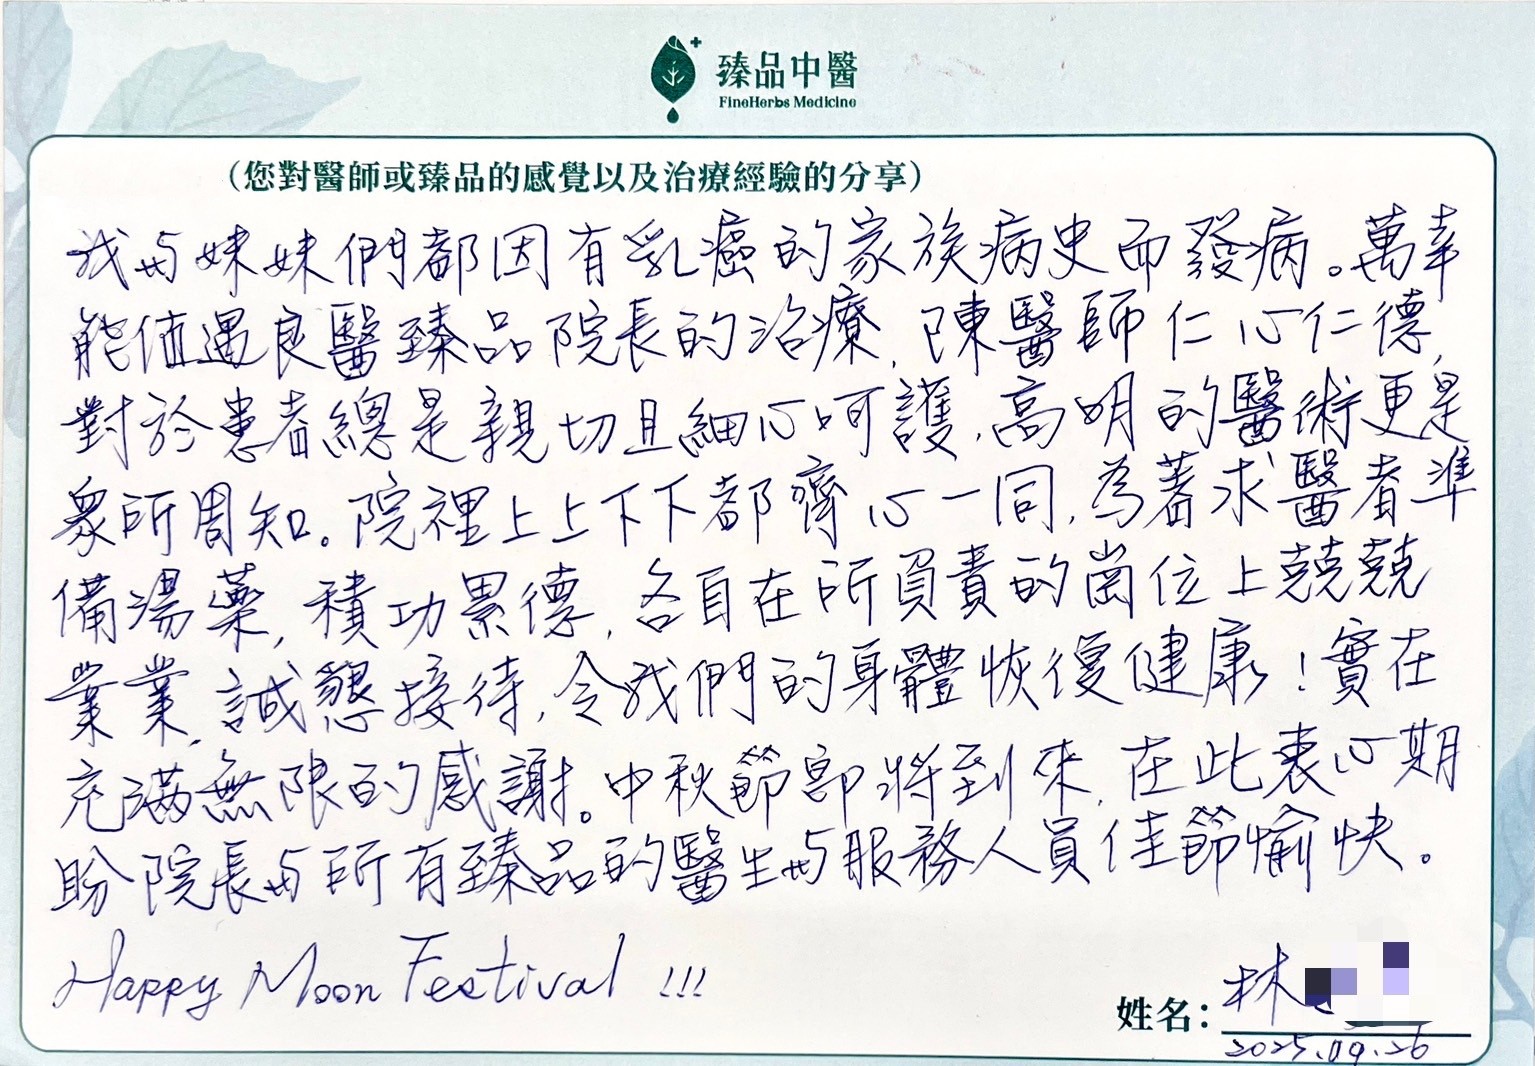 臻品中醫
FineHerbs Medicine
（您對醫師或臻品的感覺以及治療經驗的分享）
我与妹妹們都因有乳癌的家族病史而發病。萬幸
能值遇良醫臻品院長的治療,陳醫師仁心仁德,
對於患者總是親切且細心呵護,高明的醫術更是
眾所周知。院裡上上下下都齊心一同,為著求醫者準
備湯藥,積功累德,各自在所負責的崗位上兢兢
業業,誠懇接待,令我們的身體恢復健康!實在
充滿無限的感謝。中秋節即將到來,在此衷心期
盼院長与所有臻品的醫生与服務人員佳節愉快。
Happy Moon Festival !!!
姓名：林
2025.09.26